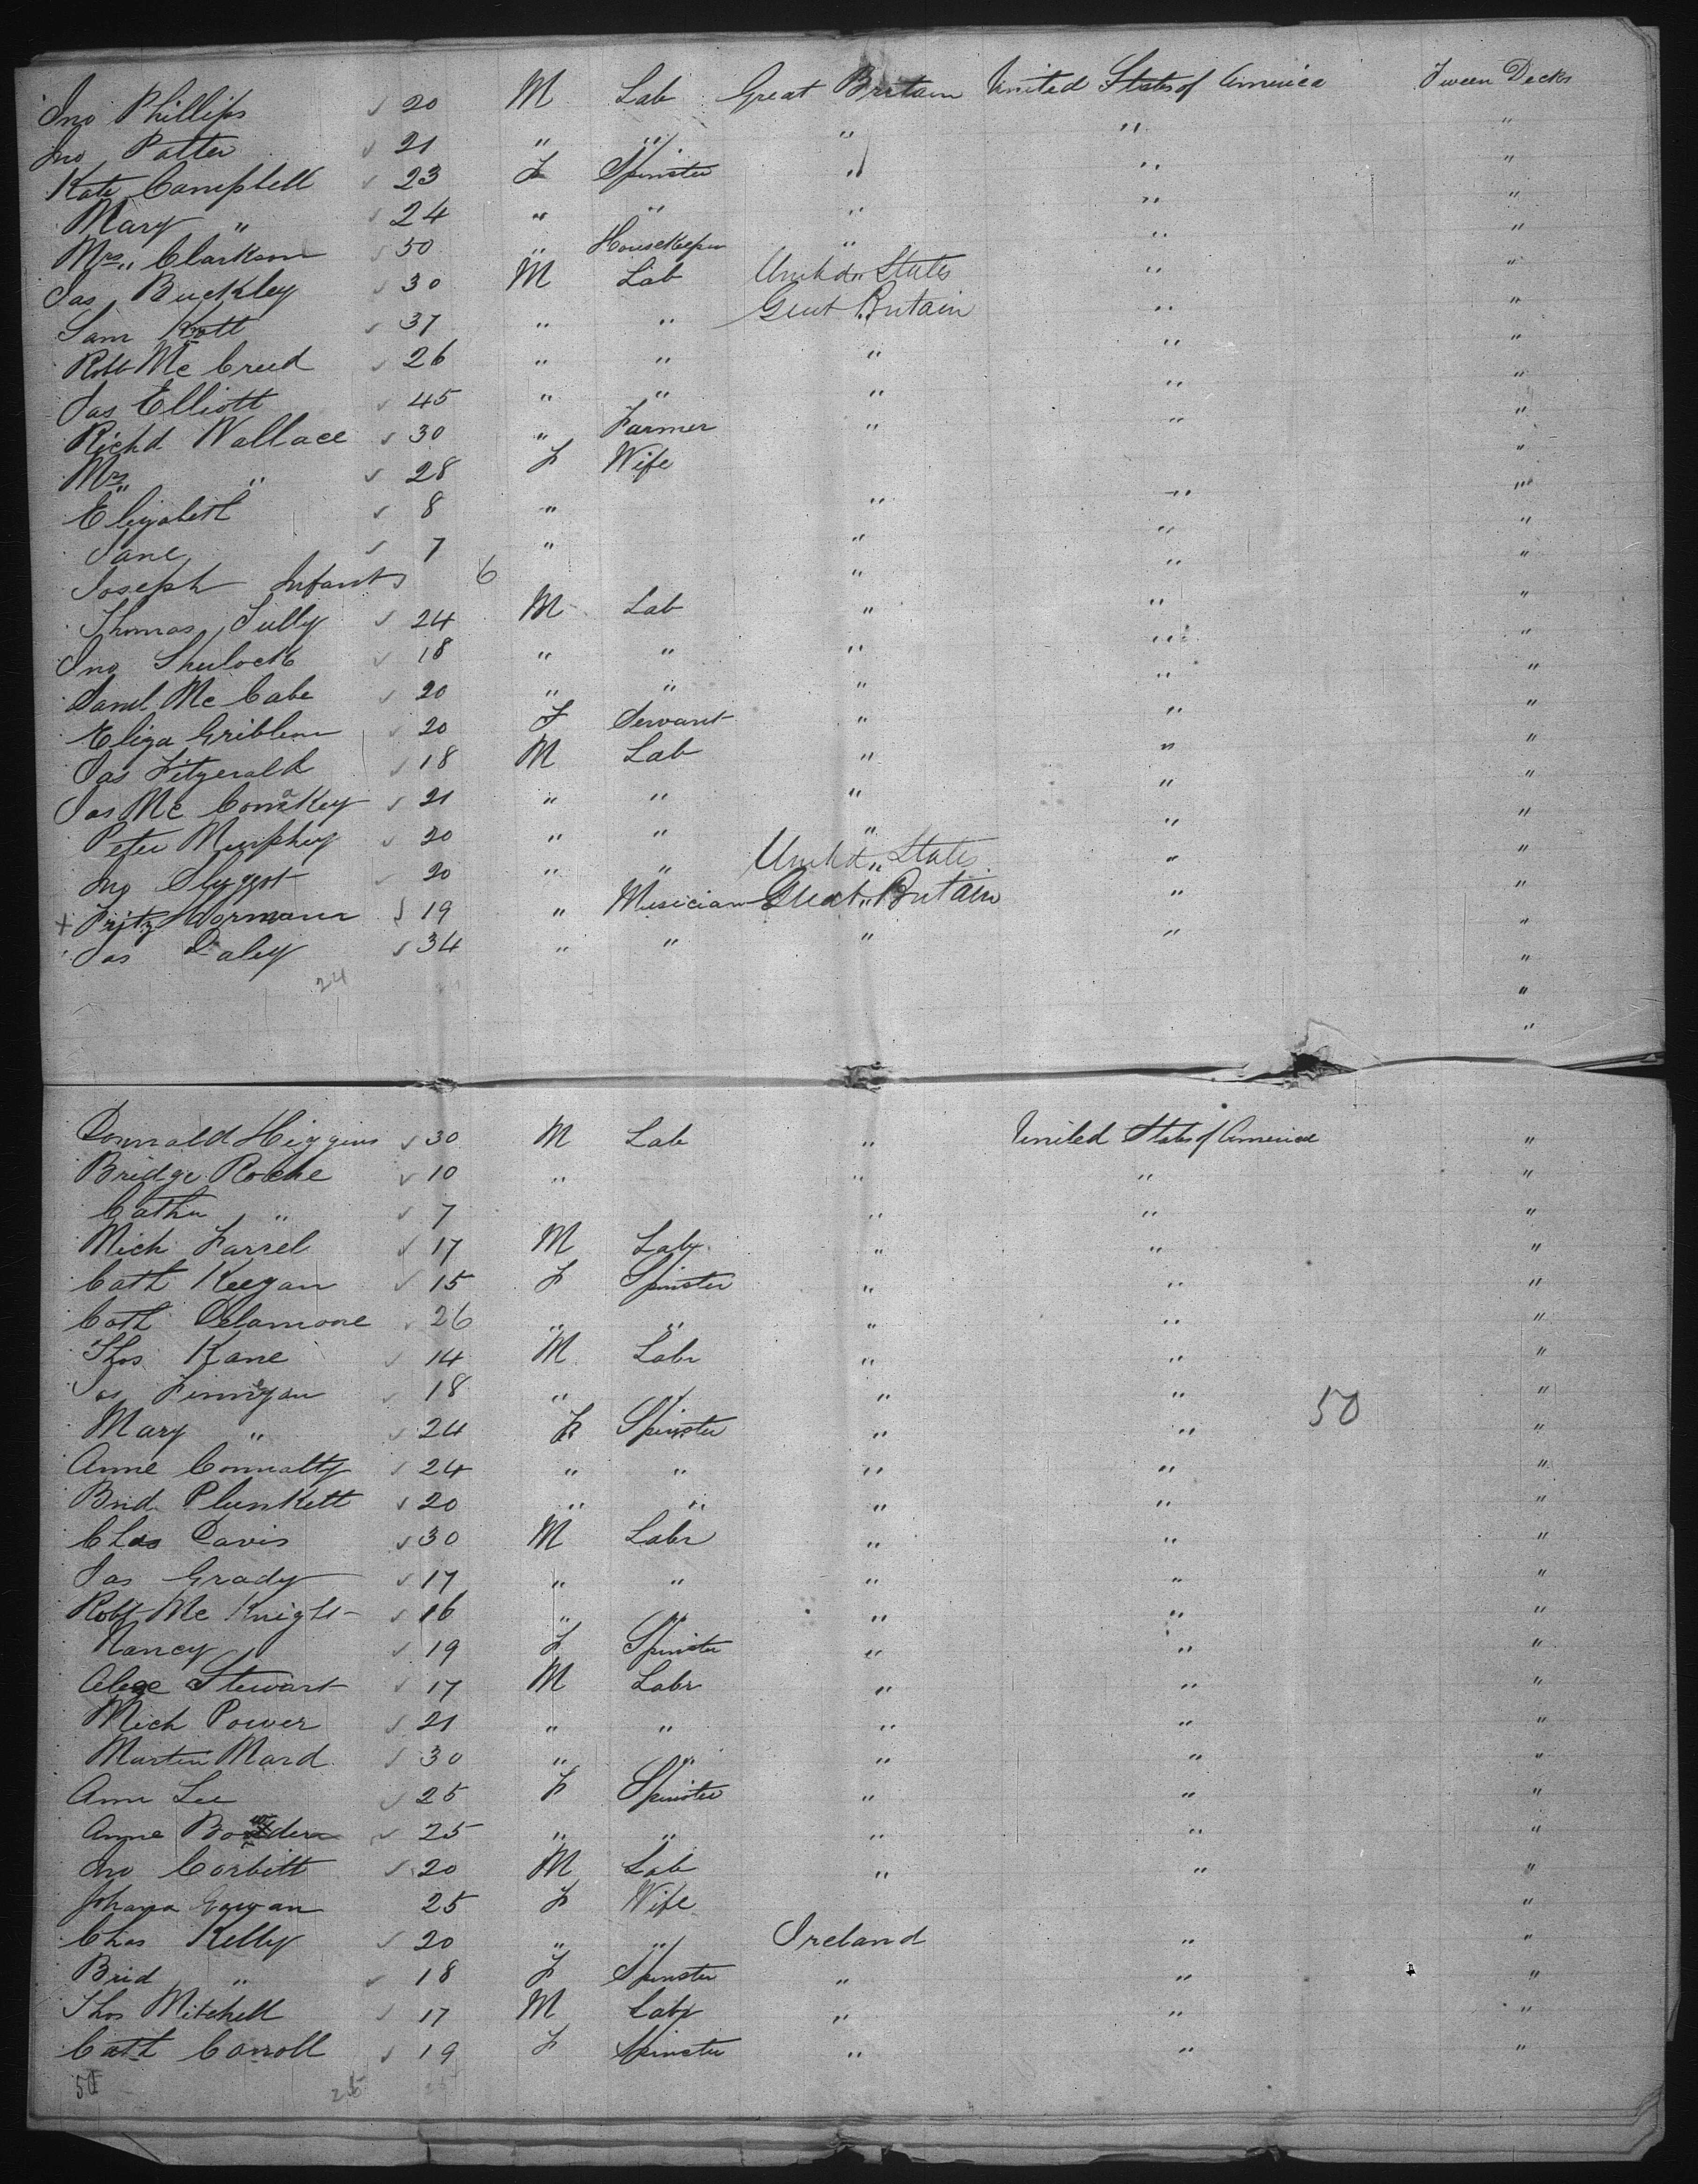 Jno Phillips 20 M Lab Great Britain United States of America Tween Decks
Jno Potter 21 " " " " "
Kate Campbell 23 F Spinster " " "
Mary " 24 " " " " "
Mrs " Clarkson 50 " Housekeeper " " "
Jas Buckley 30 M Lab United States " "
Sam Knott 37 " " Great Britain " "
Robt Mc Creed 26 " " " " "
Jas Elliott 45 " " " " "
Richd Wallace 30 " Farmer " " "
Mrs " 28 F Wife "
Elizabeth 8 " " " "
Jane 7 " " " "
Joseph Infant 6 " " "
Thomas Tully 24 M Lab " " "
Jno Shulock 18 " " " " "
Danl Mc Cabe 20 " " " " "
Eliza Gribben 20 F Servant " " "
Jas Fitzgerald 18 M Lab " " "
Jas Mc Comskey 21 " " " " "
Peter Murphy 20 " " " " "
Jno Slyggot 20 " " United States " "
+ Fritz Hormann 19 " Musician Great Britain " "
Jas Daley 34 " " " " "
24 "
"
"
Donnald Higgins 30 M Lab " United States of America "
Bridge Roche 10 " " " "
Cathn " 7 " " "
Mich Farrel 17 M Labr " " "
Cath Keegan 15 F Spinster " " "
Cath Delamore 26 " " " " "
Thos Kane 14 M Labr " " "
Jas Finnigan 18 " " " " "
Mary " 24 F Spinster " " 50 "
Anne Connalty 24 " " " " "
Brid Plunkett 20 " " " " "
Chas Davis 30 M Labr " " "
Jas Grady 17 " " " " "
Robt Mc Knight 16 " " " " "
Nancy 19 F Spinster " " "
Alexe Stewart 17 M Labr " " "
Mich Power 21 " " " " "
Martin Mard 30 " " " " "
Ann Lee 25 F Spinster " " "
Anne 25 " " " " "
Jno Corbitt 20 M Lab " " "
Johana 25 F Wife "
Chas Kelly 20 " " Ireland " "
Brid " 18 F Spinster " " "
Thos Mitchell 17 M Labr " " "
Cath Carroll 19 F Spinster " " "
50 25